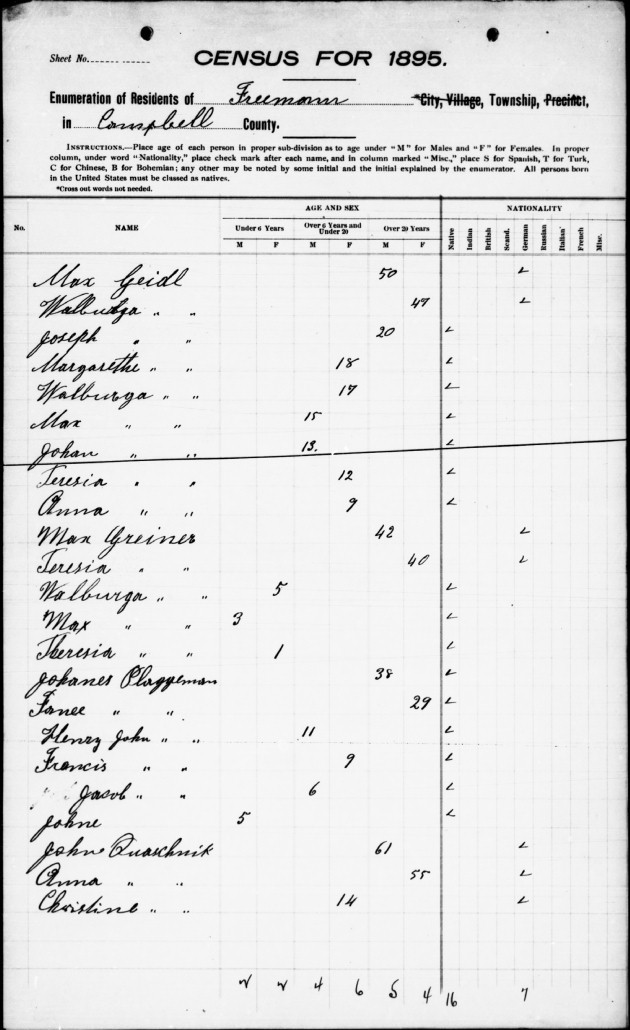 Sheet No.
CENSUS FOR 1895.
Enumeration of Residents of Freemann *City, Village, Township, Precinct,
in Campbell County.
INSTRUCTIONS.—Place age of each person in proper sub-division as to age under "M" for Males and "F" for Females. In proper
column, under word "Nationality," place check mark after each name, and in column marked "Misc.," place S for Spanish, T for Turk,
C for Chinese, B for Bohemian; any other may be noted by some initial and the initial explained by the enumerator. All persons born
in the United States must be classed as natives.
*Cross out words not needed.
No. NAME AGE AND SEX NATIONALITY
Under 6 Years Over 6 Years and Under 20 Over 20 Years
M F M F M F Native Indian British Scand. German Russian Italian French Misc.
Max Geidl 50 ✓
Walburga " " 47 ✓
Joseph " " 20 ✓
Margarethe " " 18 ✓
Walburga " " 17 ✓
Max " " 15 ✓
Johan " " 13. ✓
Teresia " " 12 ✓
Anna " " 9 ✓
Max Greiner 42 ✓
Teresia " " 40 ✓
Walburga " " 5 ✓
Max " " 3 ✓
Theresia " " 1 ✓
Johanes Plaggeman 38 ✓
Fanee " " 29 ✓
Henry John " " 11 ✓
Francis " " 9 ✓
Jacob " " 6 ✓
Johne 5 ✓
John Quaschnik 61 ✓
Anna " " 55 ✓
Christine " " 14 ✓
2 2 4 6 5 4 16 7